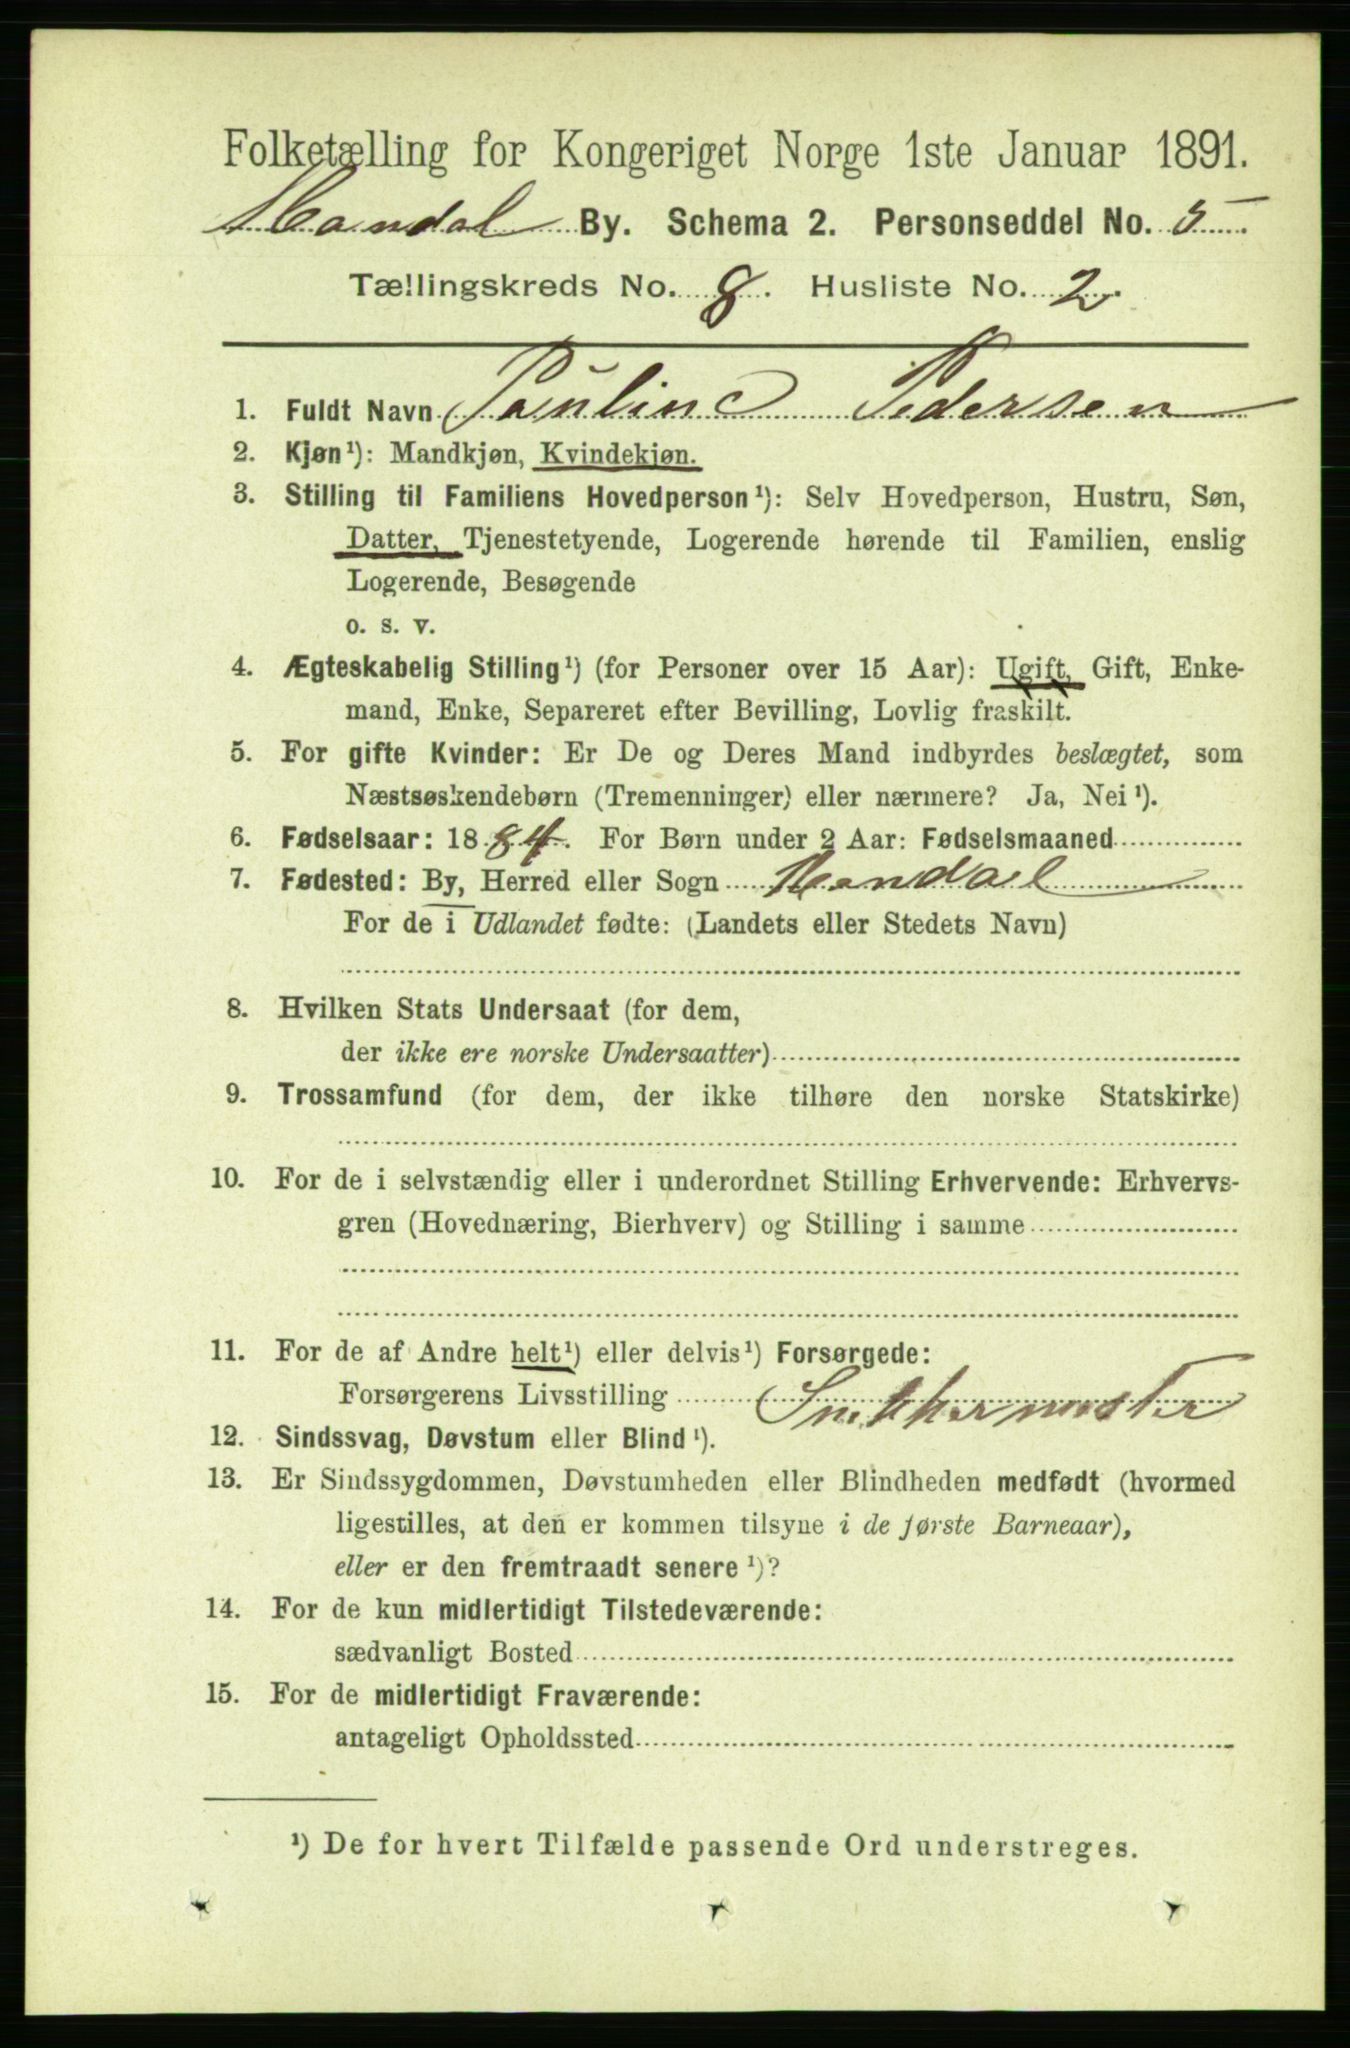 Folketælling for Kongeriget Norge 1ste Januar 1891.
Mandal By. Schema 2. Personseddel No. 5
Tællingskreds No. 8. Husliste No. 2.
1. Fuldt Navn Pauline Pedersen
2. Kjøn¹): Mandkjøn, Kvindekjøn.
3. Stilling til Familiens Hovedperson¹): Selv Hovedperson, Hustru, Søn,
Datter, Tjenestetyende, Logerende hørende til Familien, enslig
Logerende, Besøgende
o. s. v.
4. Ægteskabelig Stilling¹) (for Personer over 15 Aar): Ugift, Gift, Enke-
mand, Enke, Separeret efter Bevilling, Lovlig fraskilt.
5. For gifte Kvinder: Er De og Deres Mand indbyrdes beslægtet, som
Næstsøskendebørn (Tremenninger) eller nærmere? Ja, Nei¹).
6. Fødselsaar: 1884. For Børn under 2 Aar: Fødselsmaaned
7. Fødested: By, Herred eller Sogn Mandal
For de i Udlandet fødte: (Landets eller Stedets Navn)
8. Hvilken Stats Undersaat (for dem,
der ikke ere norske Undersaatter)
9. Trossamfund (for dem, der ikke tilhøre den norske Statskirke)
10. For de i selvstændig eller i underordnet Stilling Erhvervende: Erhvervs-
gren (Hovednæring, Bierhverv) og Stilling i samme
11. For de af Andre helt¹) eller delvis¹) Forsørgede:
Forsørgerens Livsstilling Snekkermester
12. Sindssvag, Døvstum eller Blind¹).
13. Er Sindssygdommen, Døvstumheden eller Blindheden medfødt (hvormed
ligestilles, at den er kommen tilsyne i de første Barneaar),
eller er den fremtraadt senere¹)?
14. For de kun midlertidigt Tilstedeværende:
sædvanligt Bosted
15. For de midlertidigt Fraværende:
antageligt Opholdssted
¹) De for hvert Tilfælde passende Ord understreges.